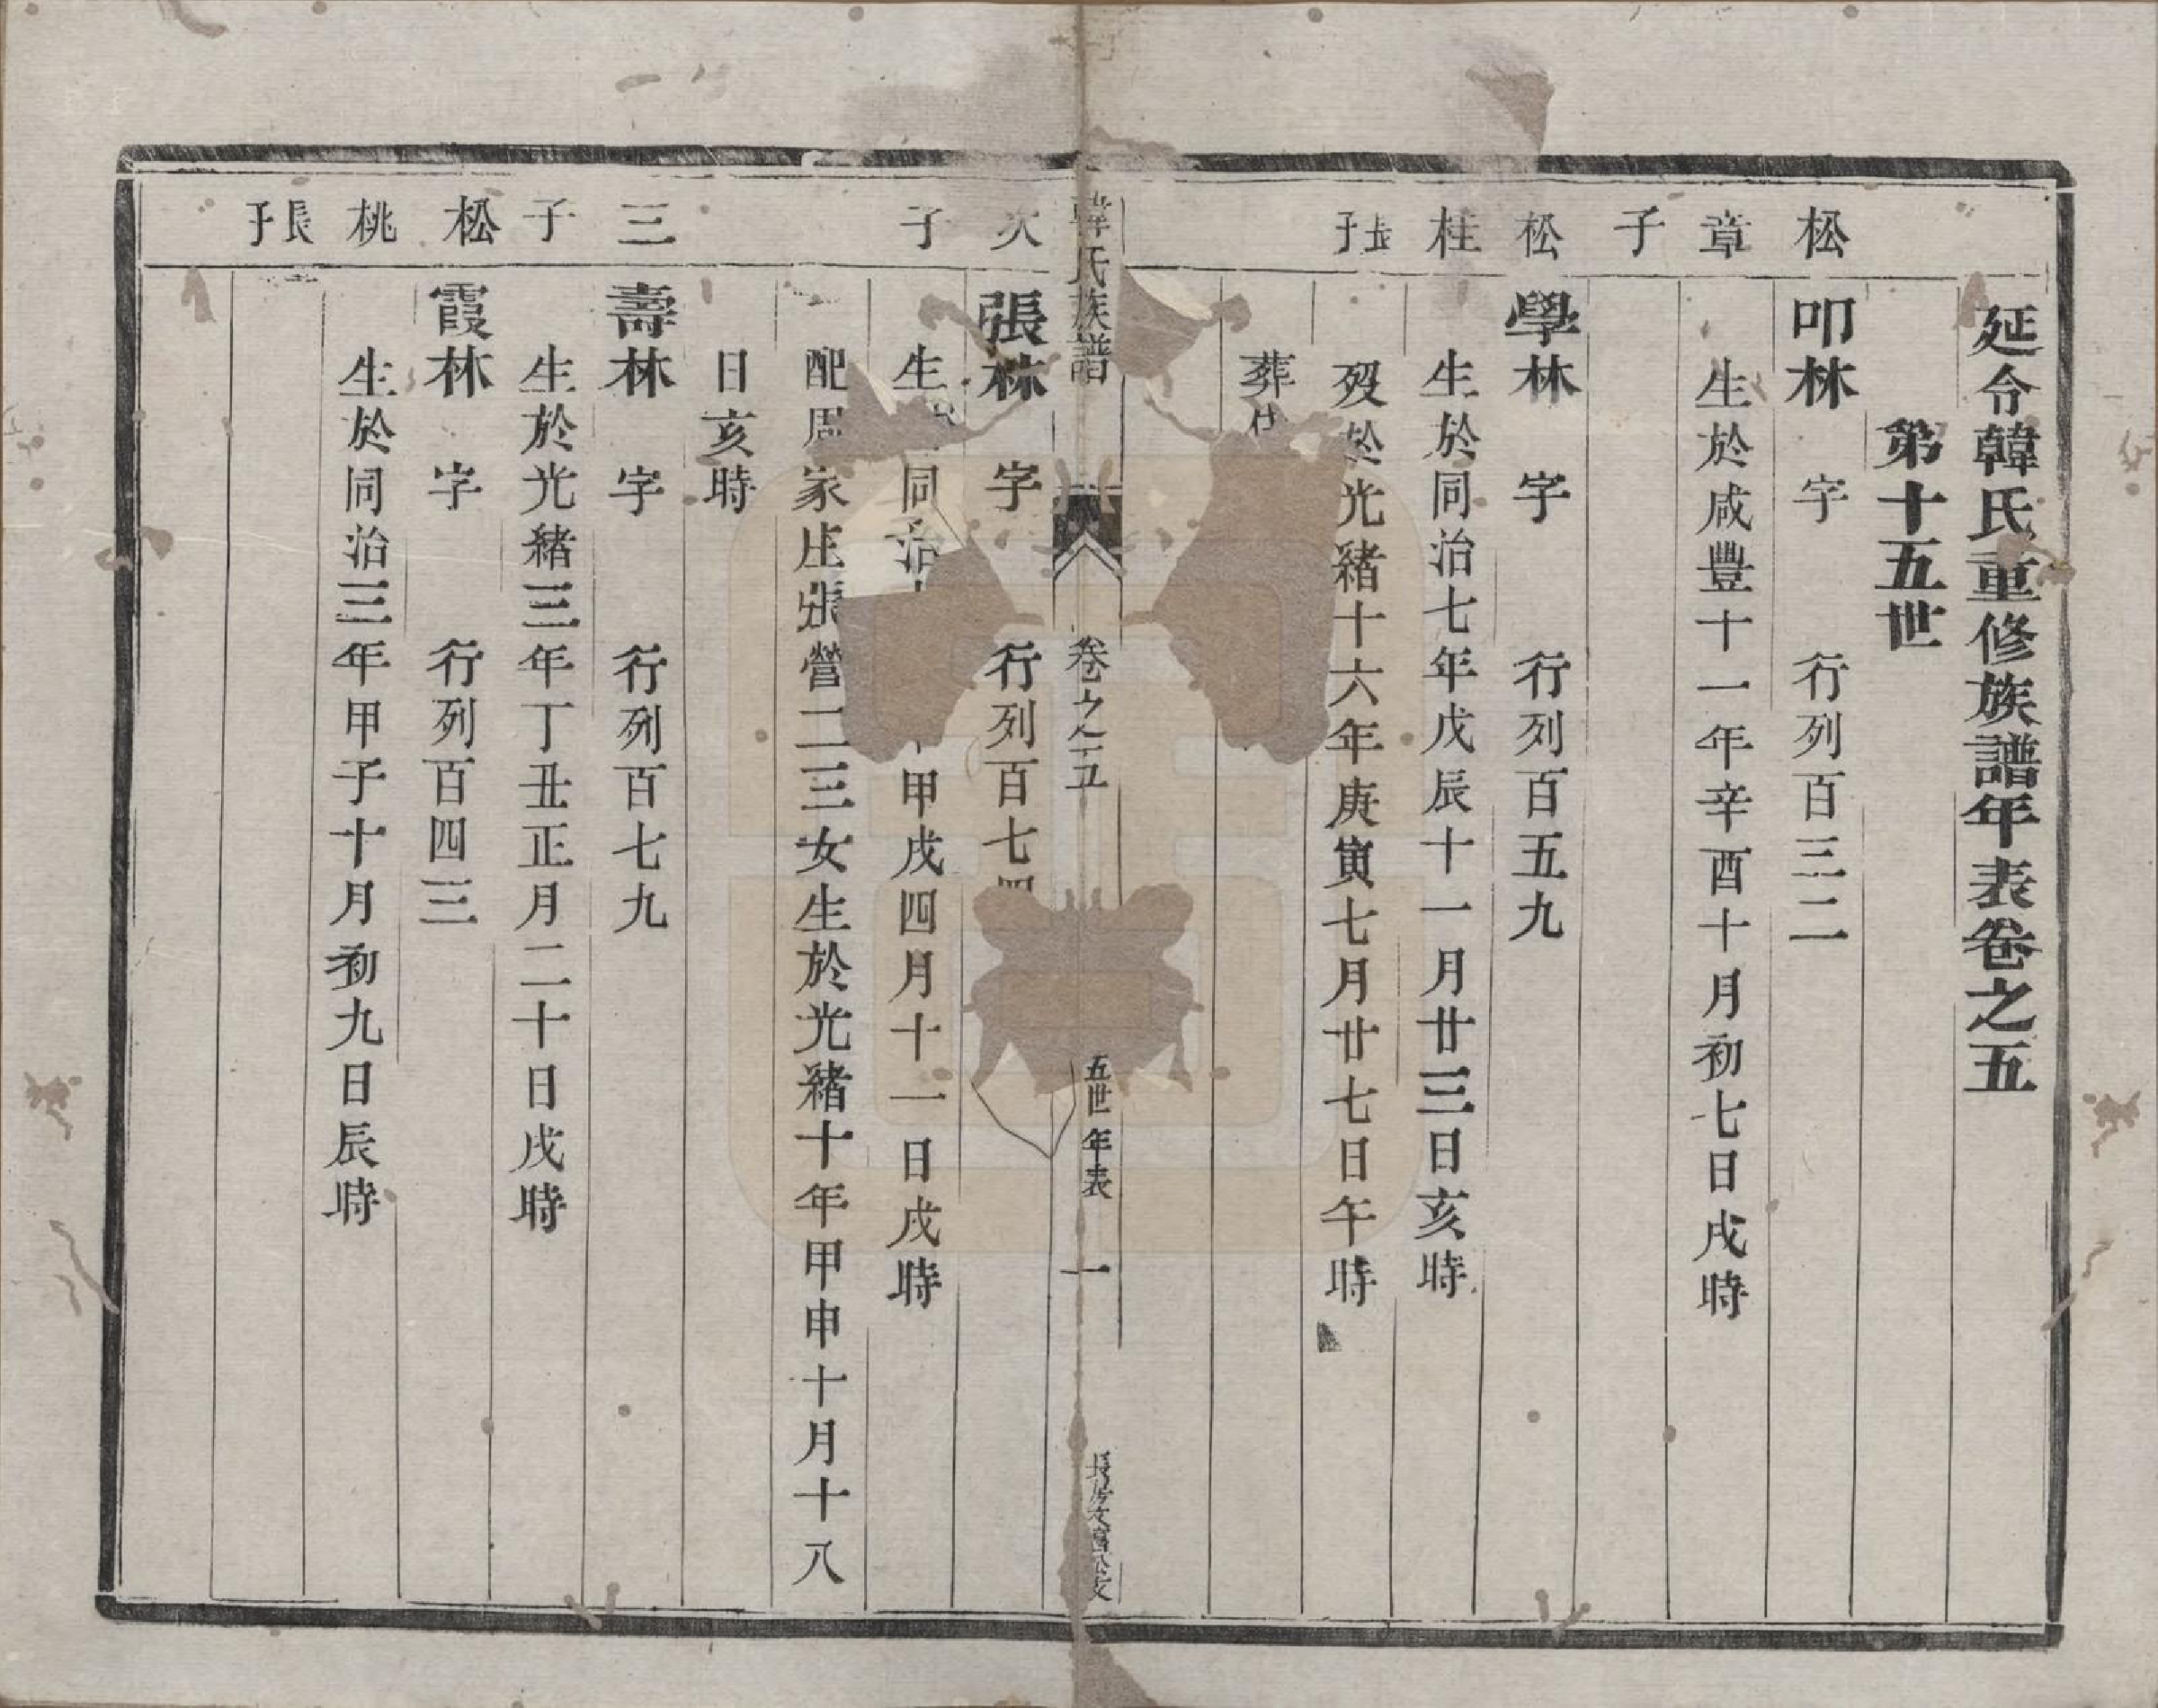 延令韓氏重修族譜年表卷之五
第十五世
松
叩林　字　行列百三二
章
生於咸豐十一年辛酉十月初七日戌時
子
松
學林　字　行列百五九
柱
生於同治七年戊辰十一月廿三日亥時
長子
歿於光緒十六年庚寅七月廿七日午時
葬
韓氏族譜　卷之五　五世年表　一
次
張林　字　行列百七四
子
生　同治　甲戌四月十一日戌時
配周家庄張營二三女生於光緒十年甲申十月十八
日亥時
三
壽林　字　行列百七九
子
生於光緒三年丁丑正月二十日戌時
松
霞林　字　行列百四三
桃
生於同治三年甲子十月初九日辰時
長子